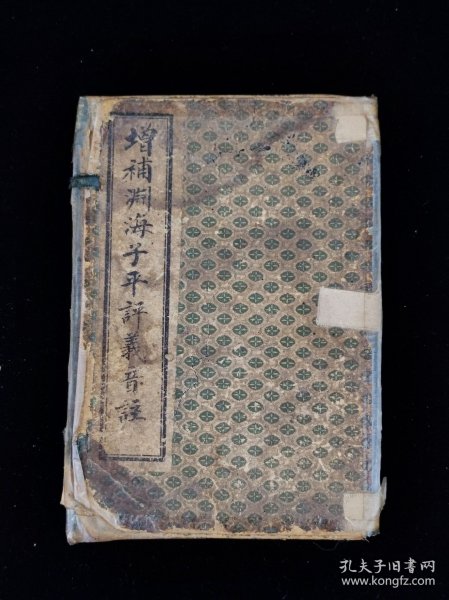 增補淵海子平評義音註
孔夫子旧书网
www.kongfz.com